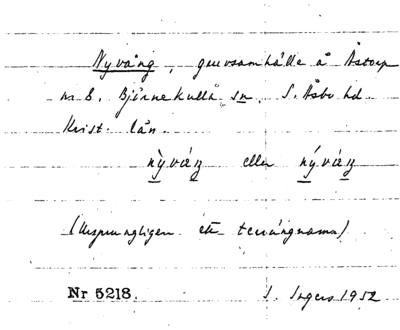 Nyvång, gruvsamhälle å Åstorp
m 8. Björnekulla sn, S. Åsbo hd
Krist. län.
nỳváŋ eller nýváŋ
(Ursprungligen ett terrängnamn)
Nr 5218. S. Ingers 1952